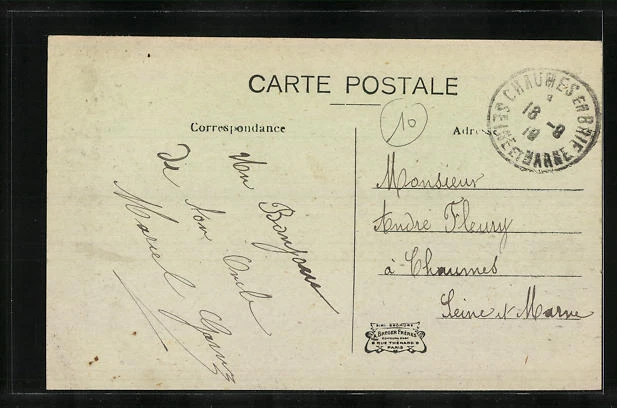 CARTE POSTALE
CHAUMES EN BRIE
18 - 9
19
SEINE ET MARNE
10
Correspondance
Adresse
Un Bonjour
de ton Oncle
Marcel
Monsieur
André Fleury
à Chaumes
Seine et Marne
BREGER FRÈRES
8 RUE THÉNARD 8
PARIS